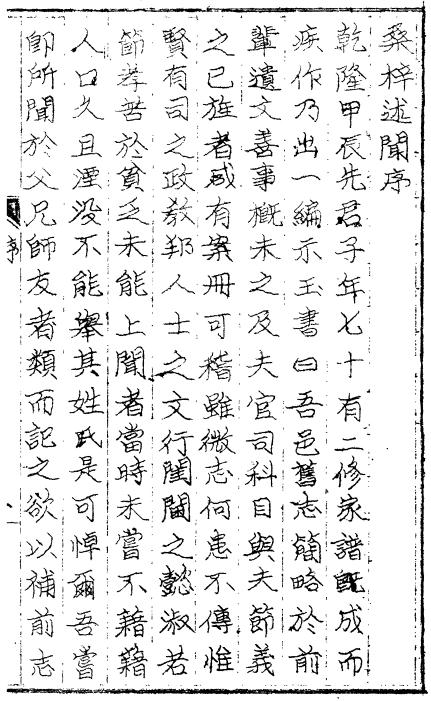 桑梓述聞序
乾隆甲辰先君子年七十有二修家譜旣成而
疾作乃出一編示玉書曰吾邑舊志簡略於前
輩遺文善事槪未之及夫官司科目與夫節義
之已旌者咸有案冊可稽雖微志何患不傳惟
賢有司之政敎邦人士之文行閨閫之懿淑若
節孝苦於貧乏未能上聞者當時未嘗不藉藉
人口久且湮沒不能舉其姓氏是可悼爾吾嘗
卽所聞於父兄師友者類而記之欲以補前志
序
一